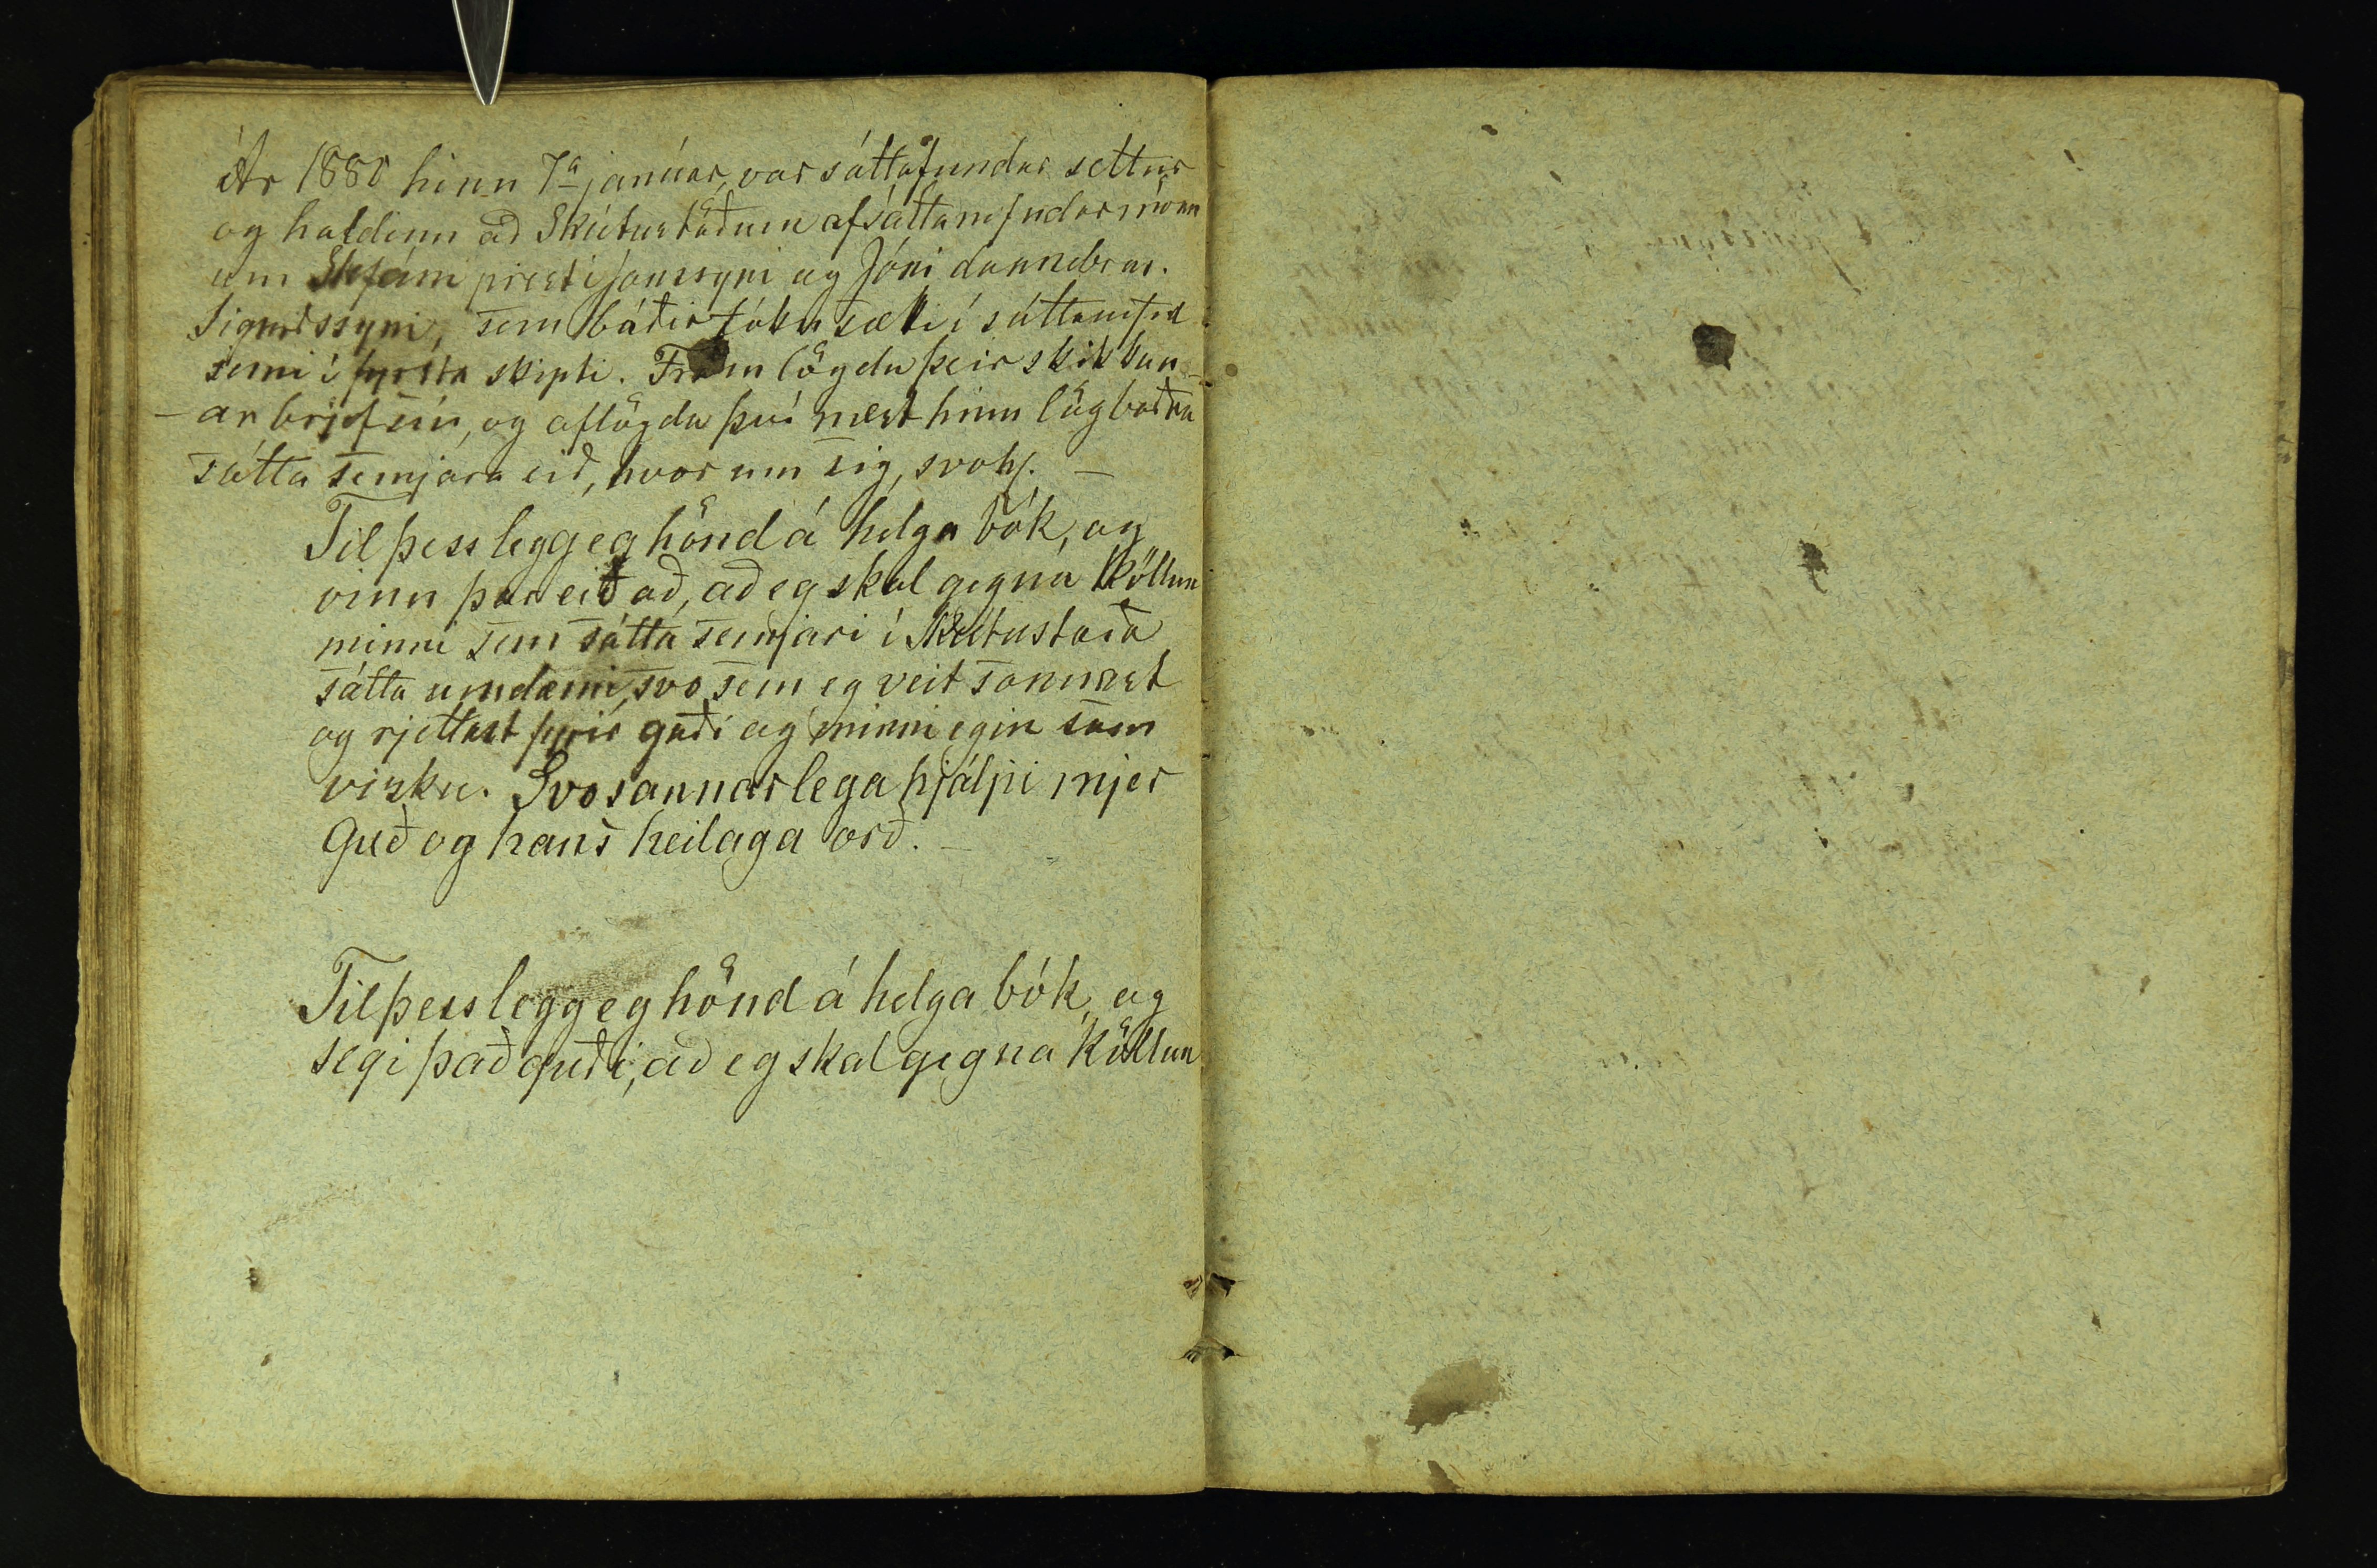 Ár 1880 hinn 7a janúar, var sáttafundur settur
og haldinn að Skútustöðum af sáttanefndarmönn
um Stefáni presti Jónssyni og Jóni dannebrm.
Sigurðssyni, sem báðir tóku sæti í sáttanefnd
sinni í fyrsta skipti. Fram lögðu þeir skikkun-
-arbrjef sín, og aflögðu því næst hinn lögboðna
sátta semjara eið, hvor um sig, svohlj. —
Til þess legg eg hönd á helga bók, og
vinn þar eið að, að eg skal gegna köllun
minni sem sátta semjari í Skútustaða
sátta umdæmi, svo sem eg veit sannast
og rjettast fyrir guði og minni egin sam
vizku. Svo sannarlega hjálpi mjer
Guð og hans heilaga orð. —
Til þess legg eg hönd á helga bók, og
segi það guði, að eg skal gegna köllun